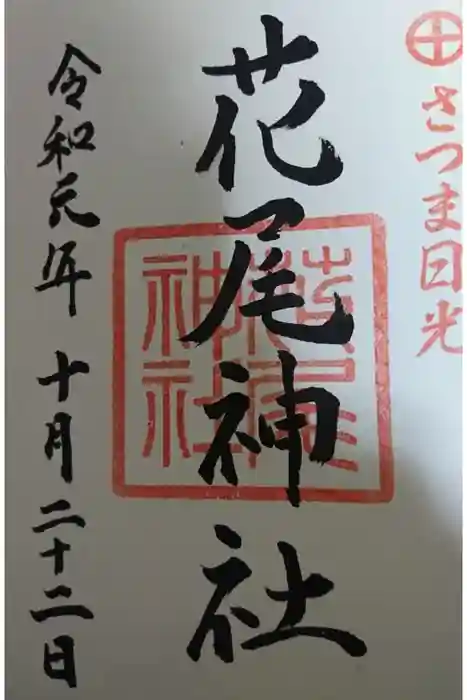 さつま日光
花尾神社
令和元年十月二十二日